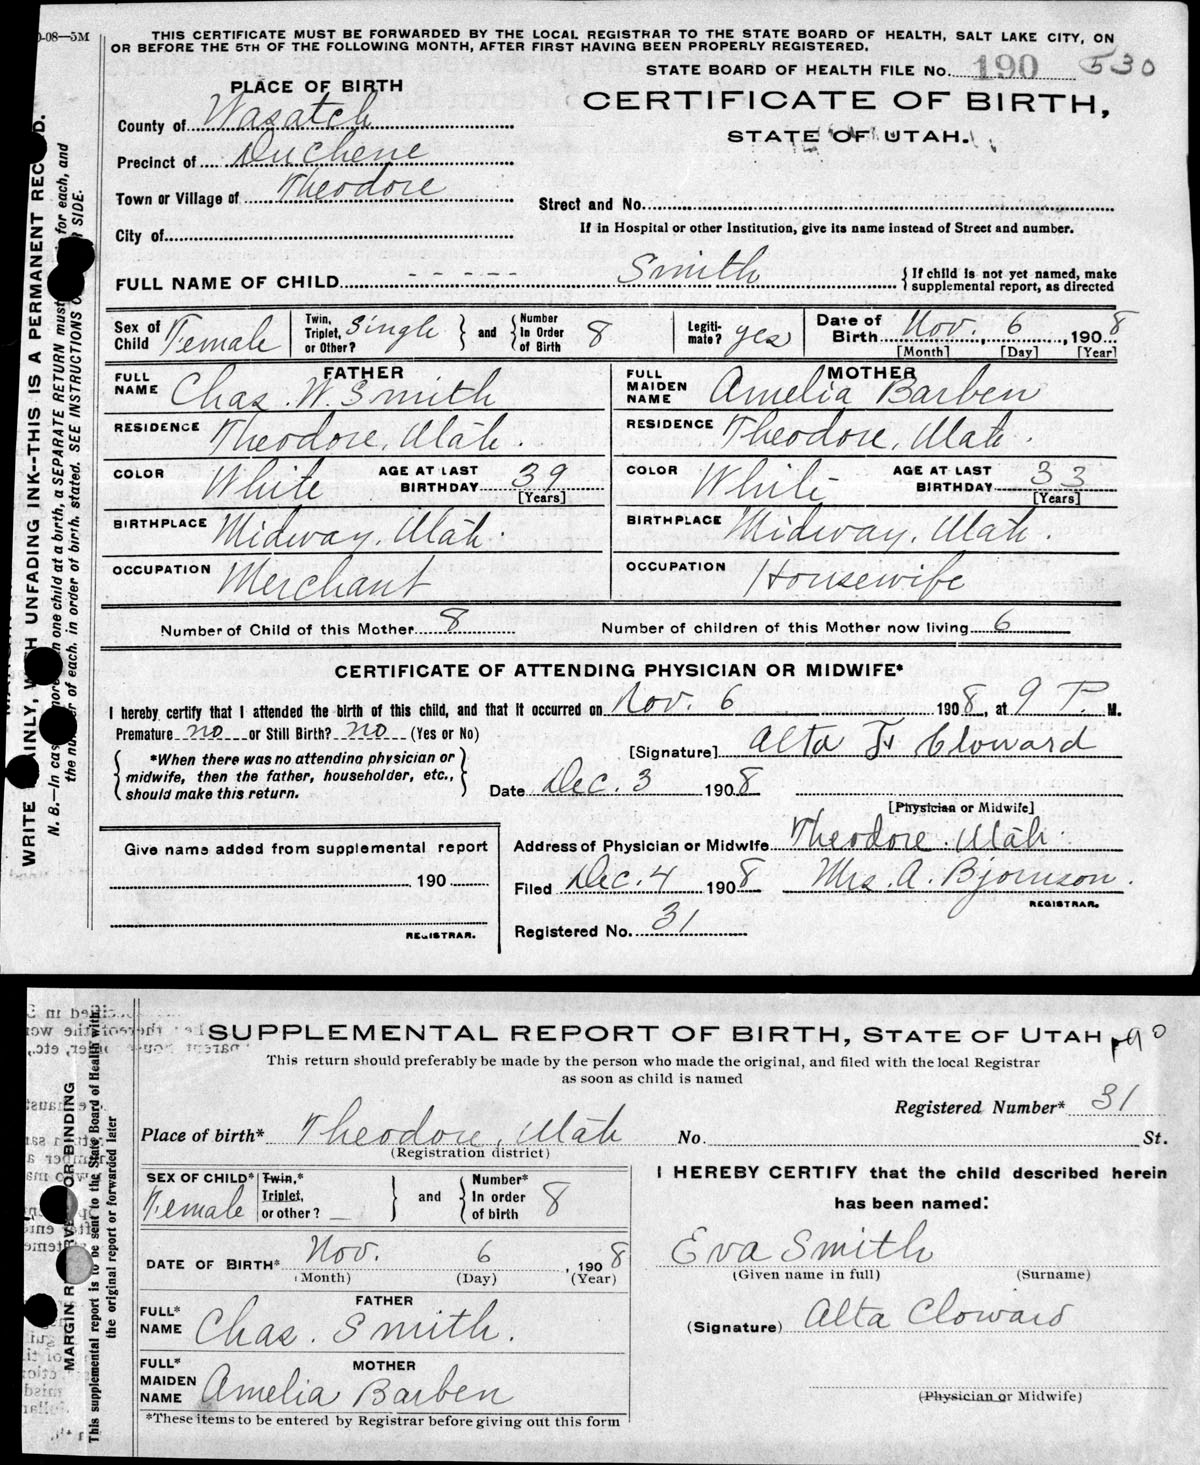 0-08—5M
THIS CERTIFICATE MUST BE FORWARDED BY THE LOCAL REGISTRAR TO THE STATE BOARD OF HEALTH, SALT LAKE CITY, ON
OR BEFORE THE 5TH OF THE FOLLOWING MONTH, AFTER FIRST HAVING BEEN PROPERLY REGISTERED.
STATE BOARD OF HEALTH FILE No. 190 530
PLACE OF BIRTH
CERTIFICATE OF BIRTH,
STATE OF UTAH.
County of Wasatch
Precinct of Duchene
Town or Village of Theodore
Street and No.
City of
If in Hospital or other Institution, give its name instead of Street and number.
FULL NAME OF CHILD - - - - - Smith { If child is not yet named, make supplemental report, as directed
Sex of Child Female Twin, Triplet, or Other? Single } and { Number In Order of Birth 8 Legiti- mate? yes Date of Birth Nov. 6, 1908
[Month] [Day] [Year]
FATHER MOTHER
FULL NAME Chas. W. Smith FULL MAIDEN NAME Amelia Barben
RESIDENCE Theodore, Utah. RESIDENCE Theodore, Utah.
COLOR White AGE AT LAST BIRTHDAY 39 [Years] COLOR White AGE AT LAST BIRTHDAY 33 [Years]
BIRTHPLACE Midway, Utah. BIRTHPLACE Midway, Utah.
OCCUPATION Merchant OCCUPATION Housewife
Number of Child of this Mother 8 Number of children of this Mother now living 6
CERTIFICATE OF ATTENDING PHYSICIAN OR MIDWIFE*
I hereby certify that I attended the birth of this child, and that it occurred on Nov. 6 1908, at 9 P. M.
Premature no or Still Birth? no (Yes or No)
[Signature] Alta F. Cloward
{ *When there was no attending physician or midwife, then the father, householder, etc., should make this return. }
Date Dec. 3 1908
[Physician or Midwife]
Give name added from supplemental report
Address of Physician or Midwife Theodore. Utah.
190
Filed Dec. 4 1908 Mrs. A. Bjornson.
REGISTRAR.
REGISTRAR.
Registered No. 31
WRITE PLAINLY, WITH UNFADING INK--THIS IS A PERMANENT RECORD.
N. B.—In case of more than one child at a birth, a SEPARATE RETURN must for each, and
the number of each, in order of birth, stated. SEE INSTRUCTIONS SIDE.
SUPPLEMENTAL REPORT OF BIRTH, STATE OF UTAH 190
This return should preferably be made by the person who made the original, and filed with the local Registrar
as soon as child is named
Registered Number* 31
Place of birth* Theodore, Utah No. St.
(Registration district)
SEX OF CHILD* Female Twin,* Triplet, or other? — } and { Number* In order of birth 8
I HEREBY CERTIFY that the child described herein
has been named:
DATE OF BIRTH* Nov. 6, 1908
(Month) (Day) (Year)
Eva Smith
(Given name in full) (Surname)
FATHER
FULL* NAME Chas. Smith.
(Signature) Alta Cloward
MOTHER
FULL* MAIDEN NAME Amelia Barben
(Physician or Midwife)
*These items to be entered by Registrar before giving out this form
MARGIN RESERVED FOR BINDING
This supplemental report is to be sent to the State Board of Health with
the original report or forwarded later